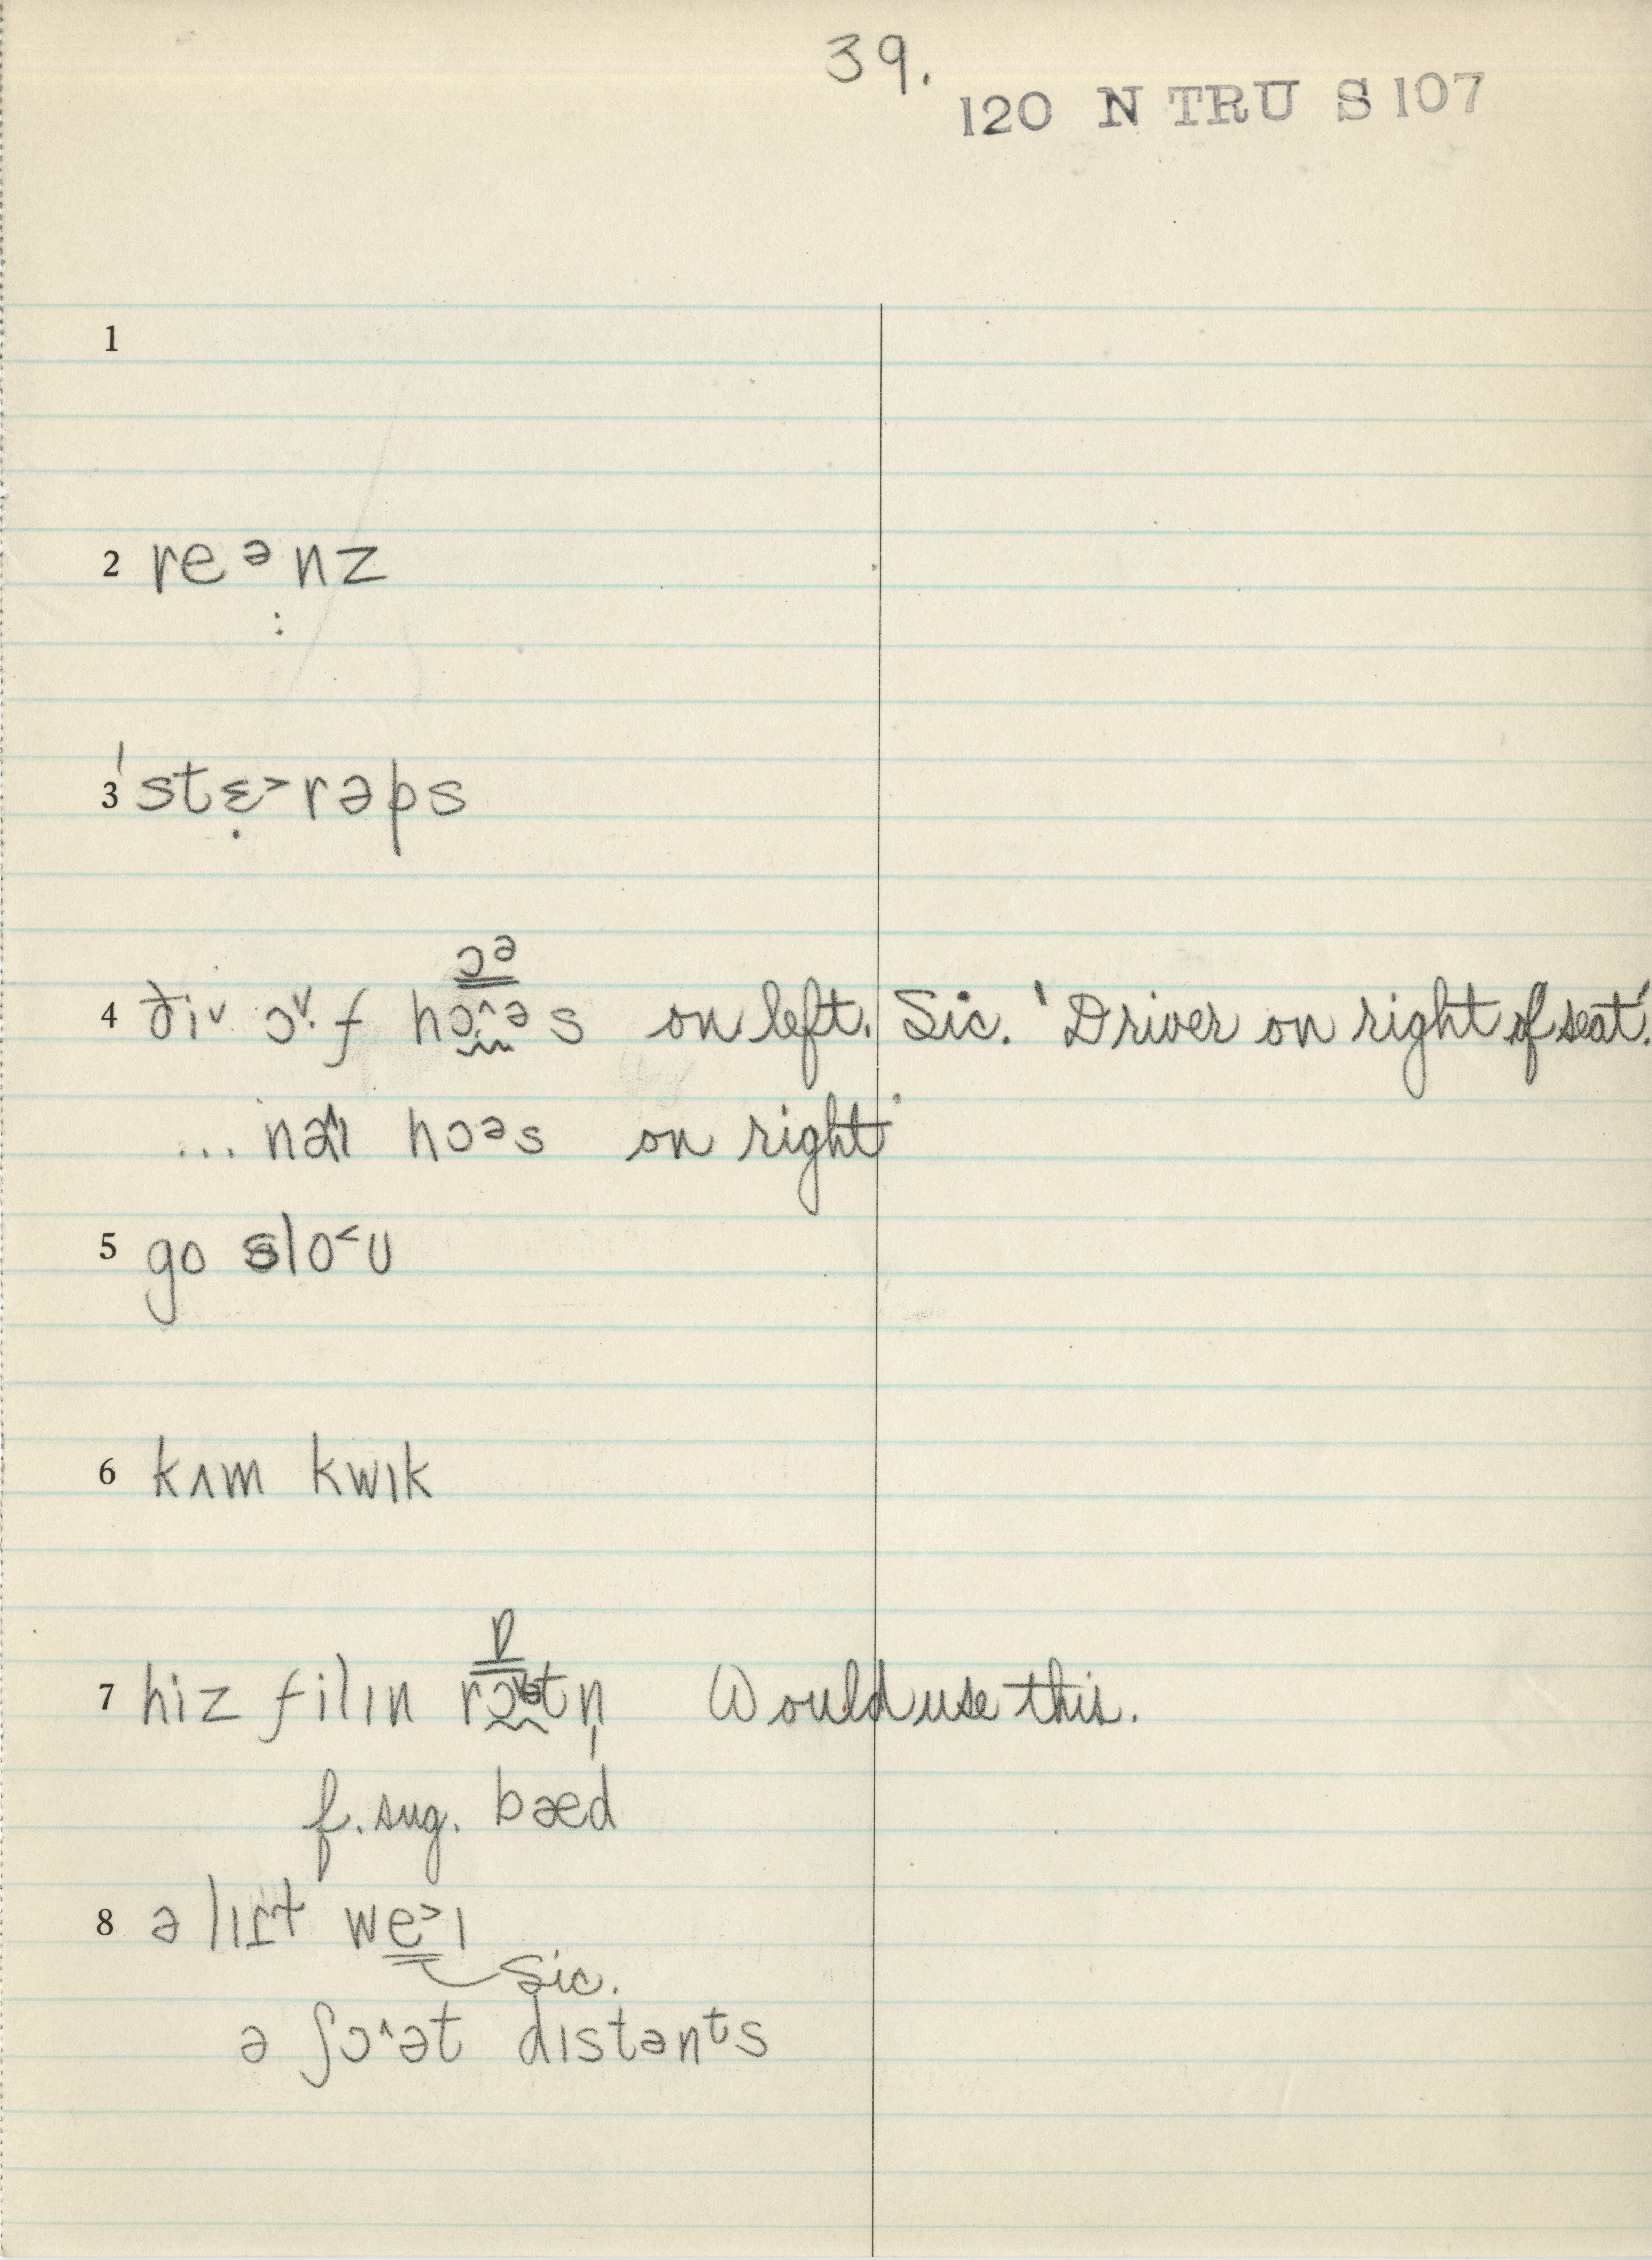 39.
120 N TRU S 107
1
2 reᵊnz
:
3 ˈstɛ̣˃rəps
ɔᵊ
4 ði˅ ɔ˅·f hɔ˄əs on left. Sic. 'Driver on right of seat.'
... nɑɪ hɔᵊs on right
5 go slo˂ʊ
6 kʌm kwɪk
ɒ
7 hiz filɪn rɔtn̩ Would use this.
f. sug. bæd
8 ə lɪt we˃ɪ
Sic.
ə ʃɔ˄ət dɪstənᵗs